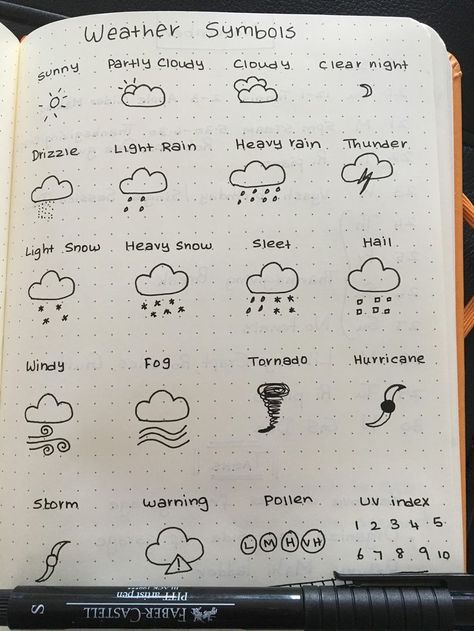 Weather Symbols
Sunny Partly Cloudy Cloudy Clear night
Drizzle Light Rain Heavy rain Thunder
Light Snow Heavy Snow Sleet Hail
Windy Fog Tornado Hurricane
Storm Warning Pollen UV index
L M H VH
1 2 3 4 5
6 7 8 9 10
S PITT artist pen FABER-CASTELL